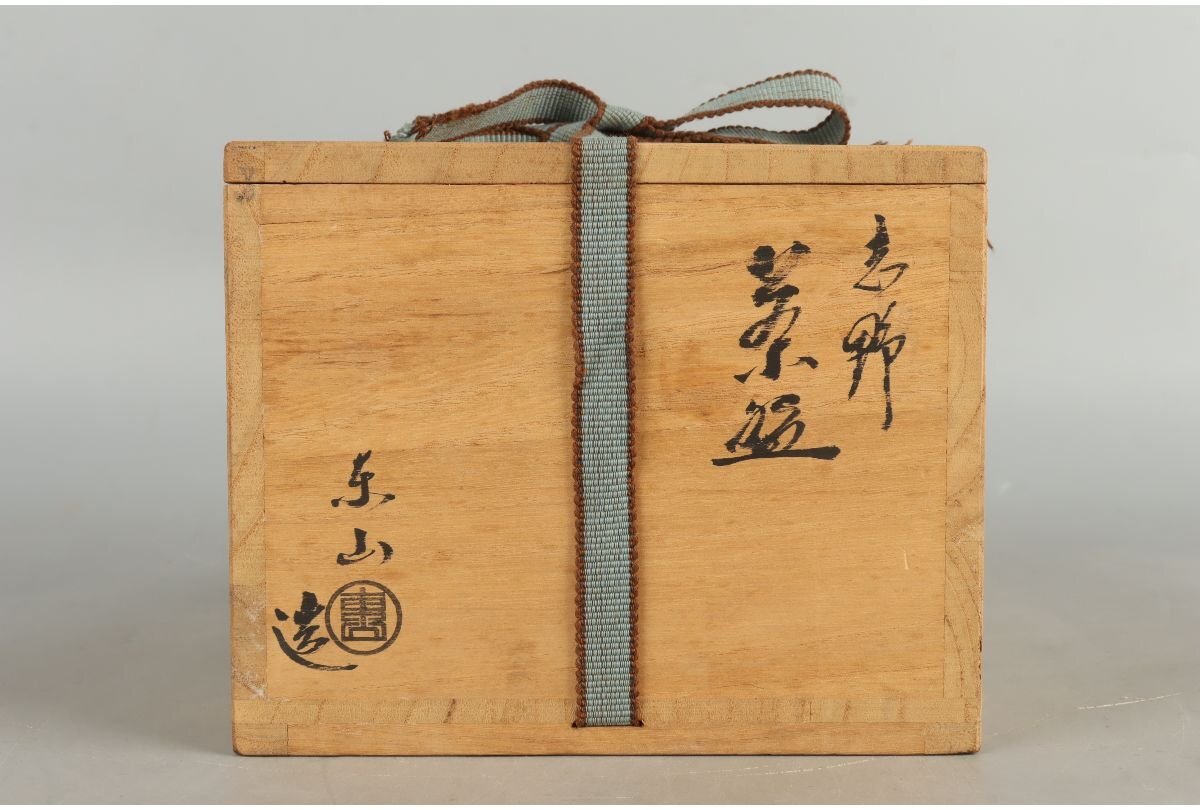 志野
茶盌
東山
造